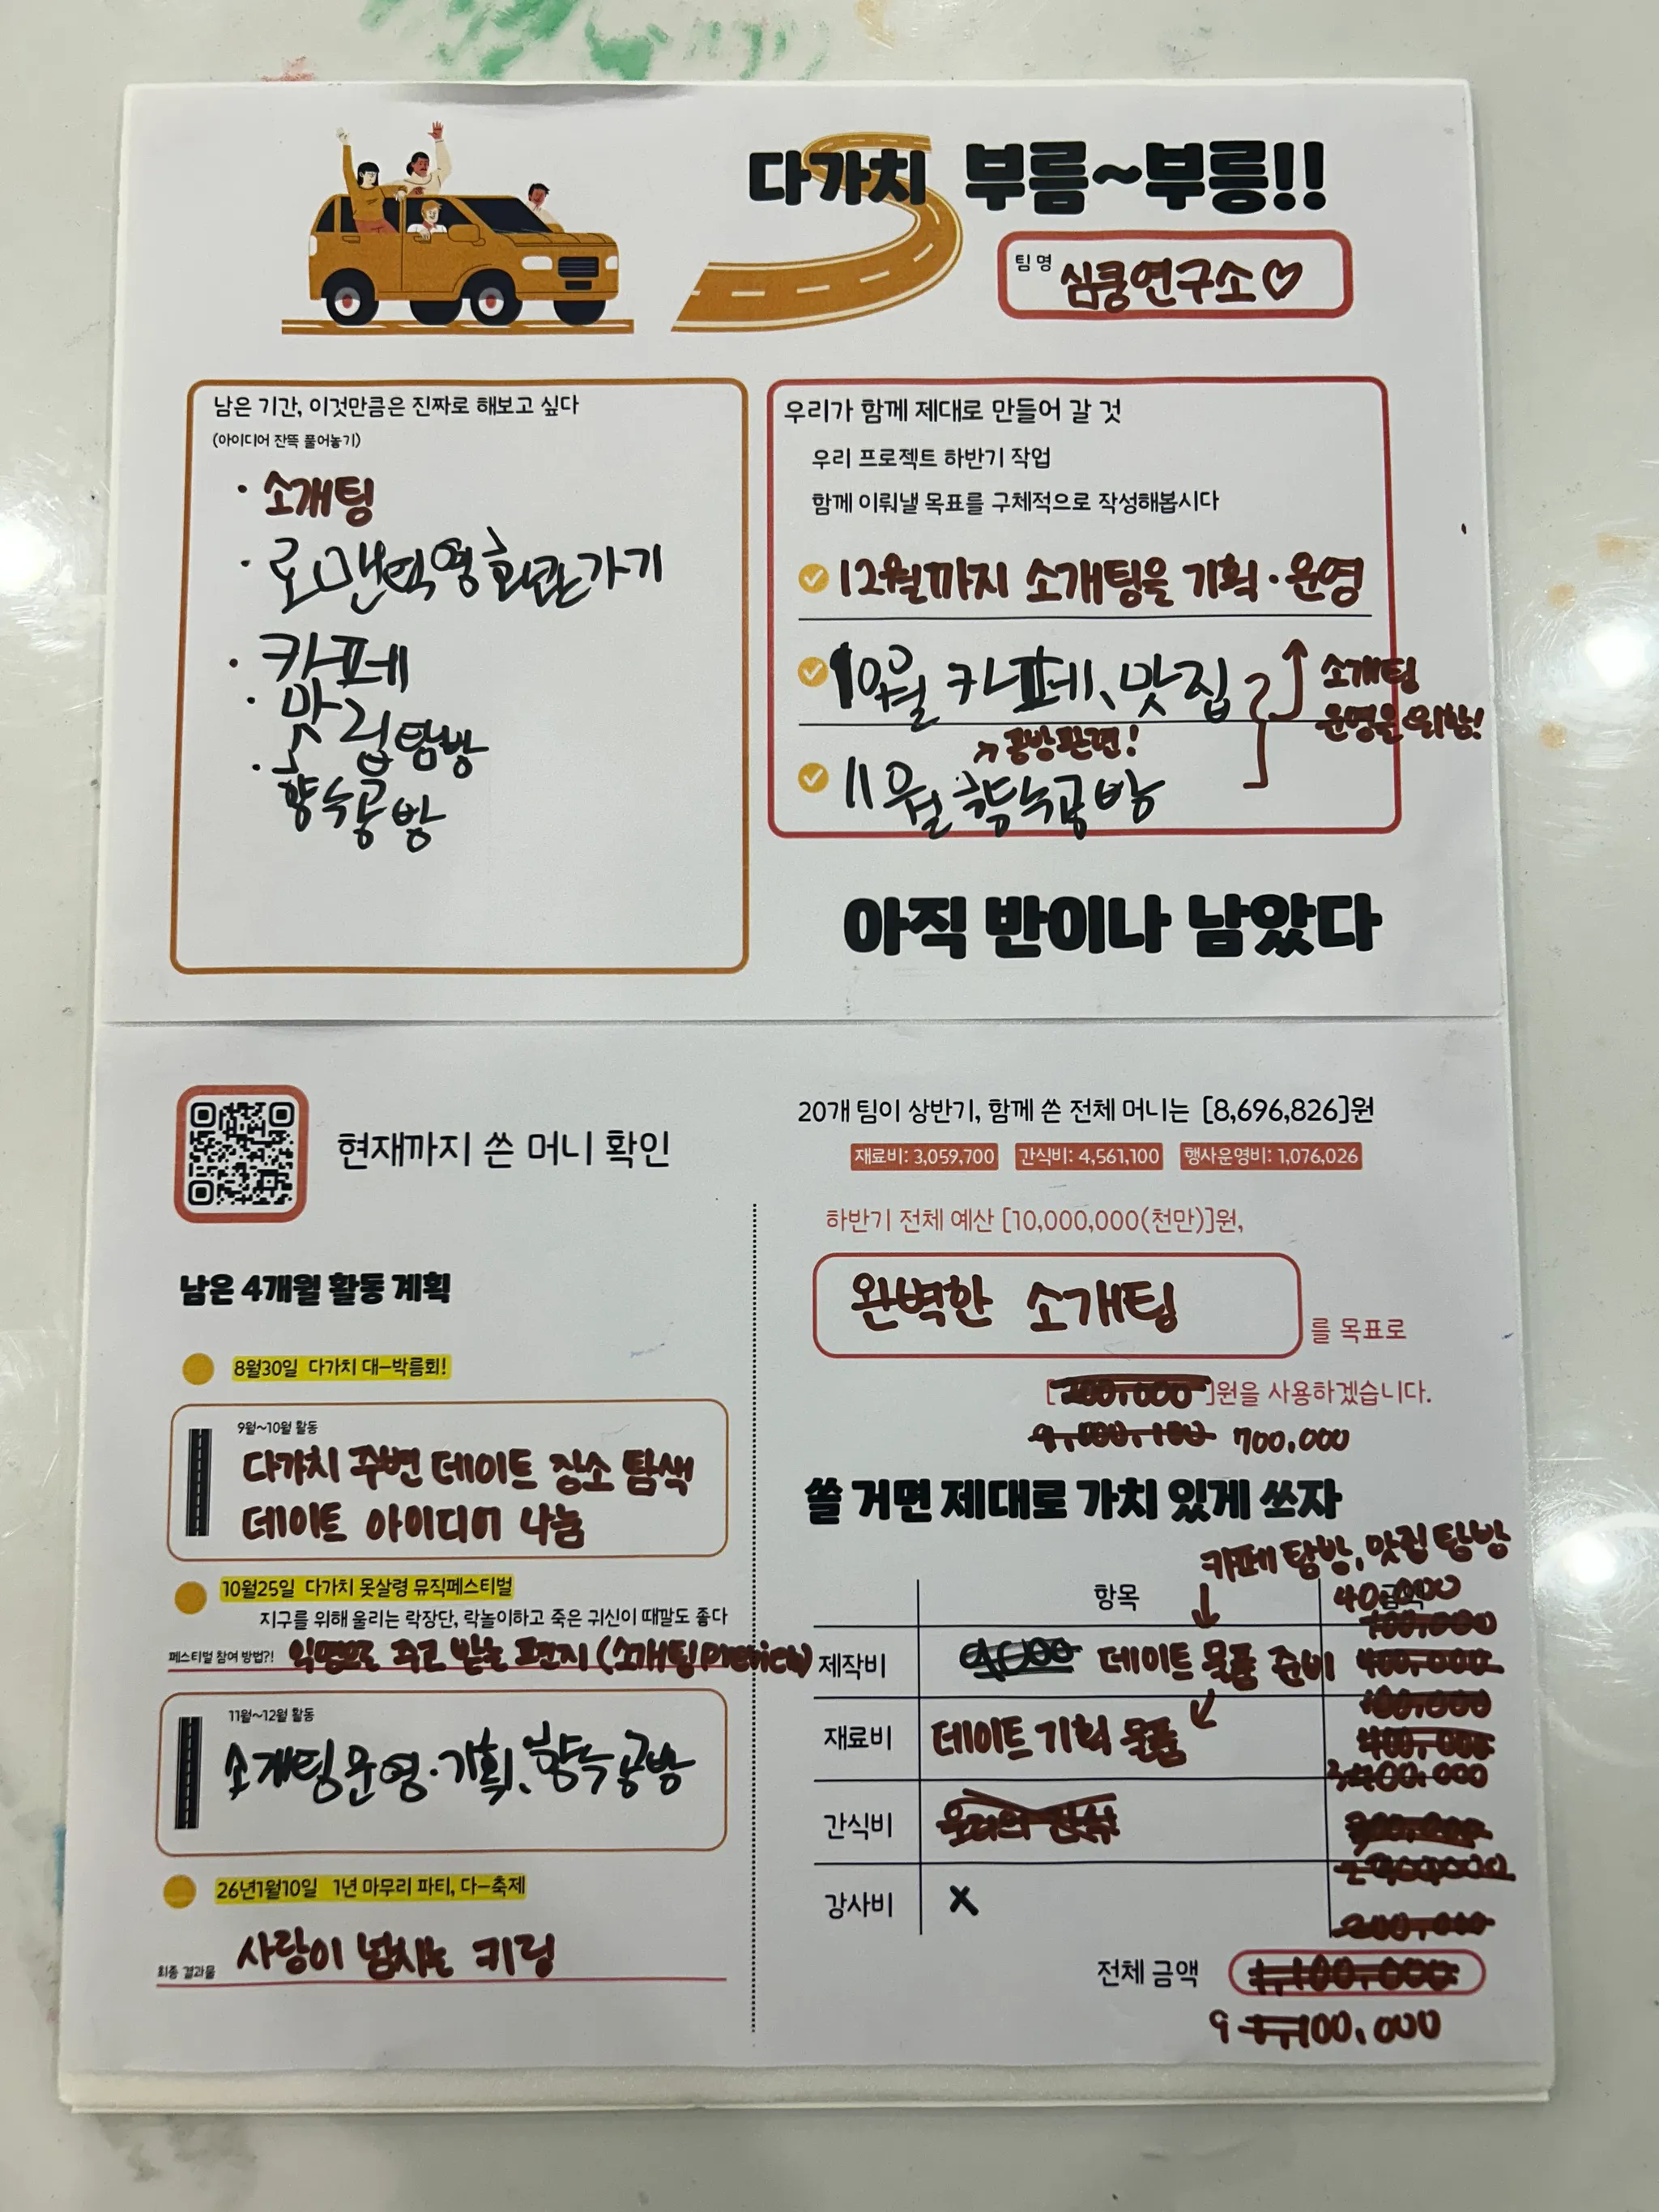 다가치 부름~부릉!!
팀명 심쿵연구소♡
남은 기간, 이것만큼은 진짜로 해보고 싶다
(아이디어 잔뜩 풀어놓기)
· 소개팅
· 로맨틱영화관가기
· 카페
· 맛집탐방
· 향수공방
우리가 함께 제대로 만들어 갈 것
우리 프로젝트 하반기 작업
함께 이뤄낼 목표를 구체적으로 작성해봅시다
12월까지 소개팅을 기획·운영
10월 카페、맛집
소개팅
운영을 위함!
↗공방관련!
11월 향수공방
아직 반이나 남았다
현재까지 쓴 머니 확인
남은 4개월 활동 계획
8월30일 다가치 대-박름회!
9월~10월 활동
다가치 주변 데이트 장소 탐색
데이트 아이디어 나눔
10월25일 다가치 못살령 뮤직페스티벌
지구를 위해 울리는 락장단, 락놀이하고 죽은 귀신이 때깔도 좋다
페스티벌 참여 방법?! 익명으로 주고 받는 편지 (소개팅preview)
11월~12월 활동
소개팅운영·기획、향수공방
26년1월10일 1년 마무리 파티, 다-축제
최종 결과물 사랑이 넘치는 키링
20개 팀이 상반기, 함께 쓴 전체 머니는 [8,696,826]원
재료비: 3,059,700 간식비: 4,561,100 행사운영비: 1,076,026
하반기 전체 예산 [10,000,000(천만)]원,
완벽한 소개팅 를 목표로
[200,000]원을 사용하겠습니다.
700,000
쓸 거면 제대로 가치 있게 쓰자
카페 탐방, 맛집 탐방
항목 금액
제작비 데이트 물품 준비 400,000
재료비 데이트 기획 물품
간식비
강사비 X
전체 금액 1,100,000
9 100,000